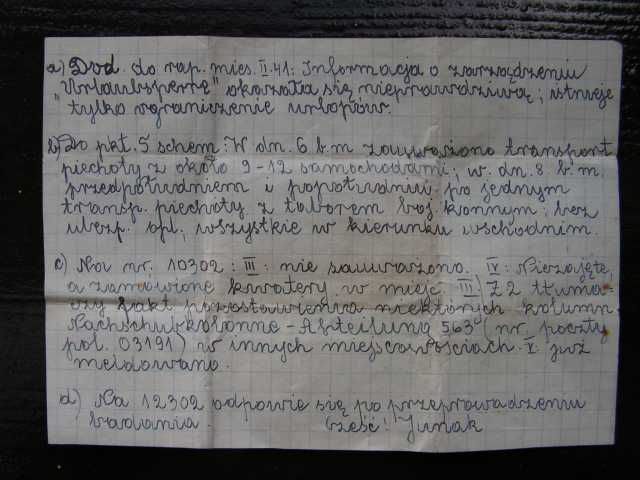 a) Dod. do rap. mies. II.41: Informacja o zarządzeniu
"Urlaubsperre" okazała się nieprawdziwą; istnieje
tylko ograniczenie urlopów.
b) Do pkt. 5 schem: W dn. 6 b.m zauważono transport
piechoty z około 9-12 samochodami; w dn. 8. b.m.
przedpołudniem i popołudniu po jednym
transp. piechoty z taborem boj. konnym; bez
ubezp. opl; wszystkie w kierunku wschodnim.
c) Na nr. 10302: III: nie zauważono. IV: Niezajęte,
a zamówione kwatery w miejc. III Z2 tłuma-
czy fakt pozostawienia niektórych kolumn
Nachschubkolonne - Abteilung 563 (nr. poczty
pol. 03191) w innych miejscowościach. V. już
meldowano.
d) Na 12302 odpowie się po przeprowadzeniu
badania. Cześć! Junak